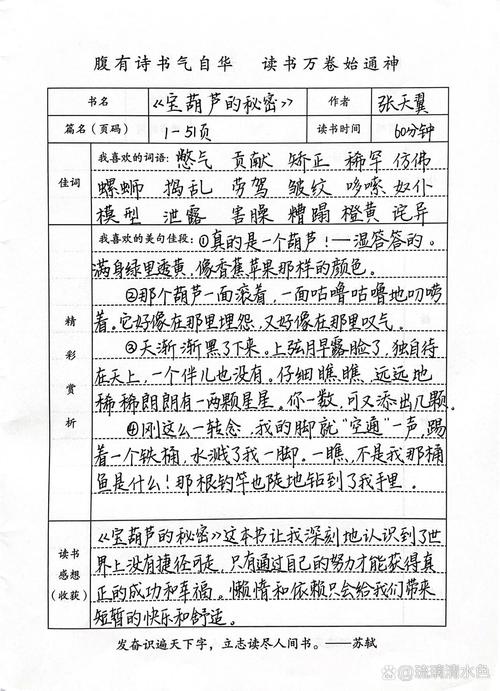 腹有诗书气自华 读书万卷始通神
书名 《宝葫芦的秘密》 作者 张天翼
篇名(页码) 1-51页 读书时间 60分钟
佳词 我喜欢的词语: 憋气 贡献 矫正 稀罕 仿佛
螺蛳 捣乱 劳驾 皱纹 哆嗦 奴仆
模型 泄露 害臊 糟蹋 橙黄 诧异
精彩赏析 我喜欢的美句佳段: ①真的是一个葫芦!——湿答答的。
满身绿里透黄,像香蕉苹果那样的颜色。
②那个葫芦一面滚着,一面咕噜咕噜地叨唠
着。它好像在那里埋怨,又好像在那里叹气。
③天渐渐黑了下来。上弦月早露脸了,独自待
在天上,一个伴儿也没有。仔细瞧瞧,远远地
稀稀朗朗有一两颗星星。你一数,可又添出几颗。
④刚这么一转念,我的脚就"空通"一声,踢
着一个铁桶,水溅了我一脚。一瞧,不是我那桶
鱼是什么!那根钓竿也陡地钻到了我手里。
读书感想(收获) 《宝葫芦的秘密》这本书让我深刻地认识到了世
界上没有捷径可走,只有通过自己的努力才能获得真
正的成功和幸福。懒惰和依赖只会给我们带来
短暂的快乐和舒适。
发奋识遍天下字,立志读尽人间书。——苏轼
@琉璃清水色